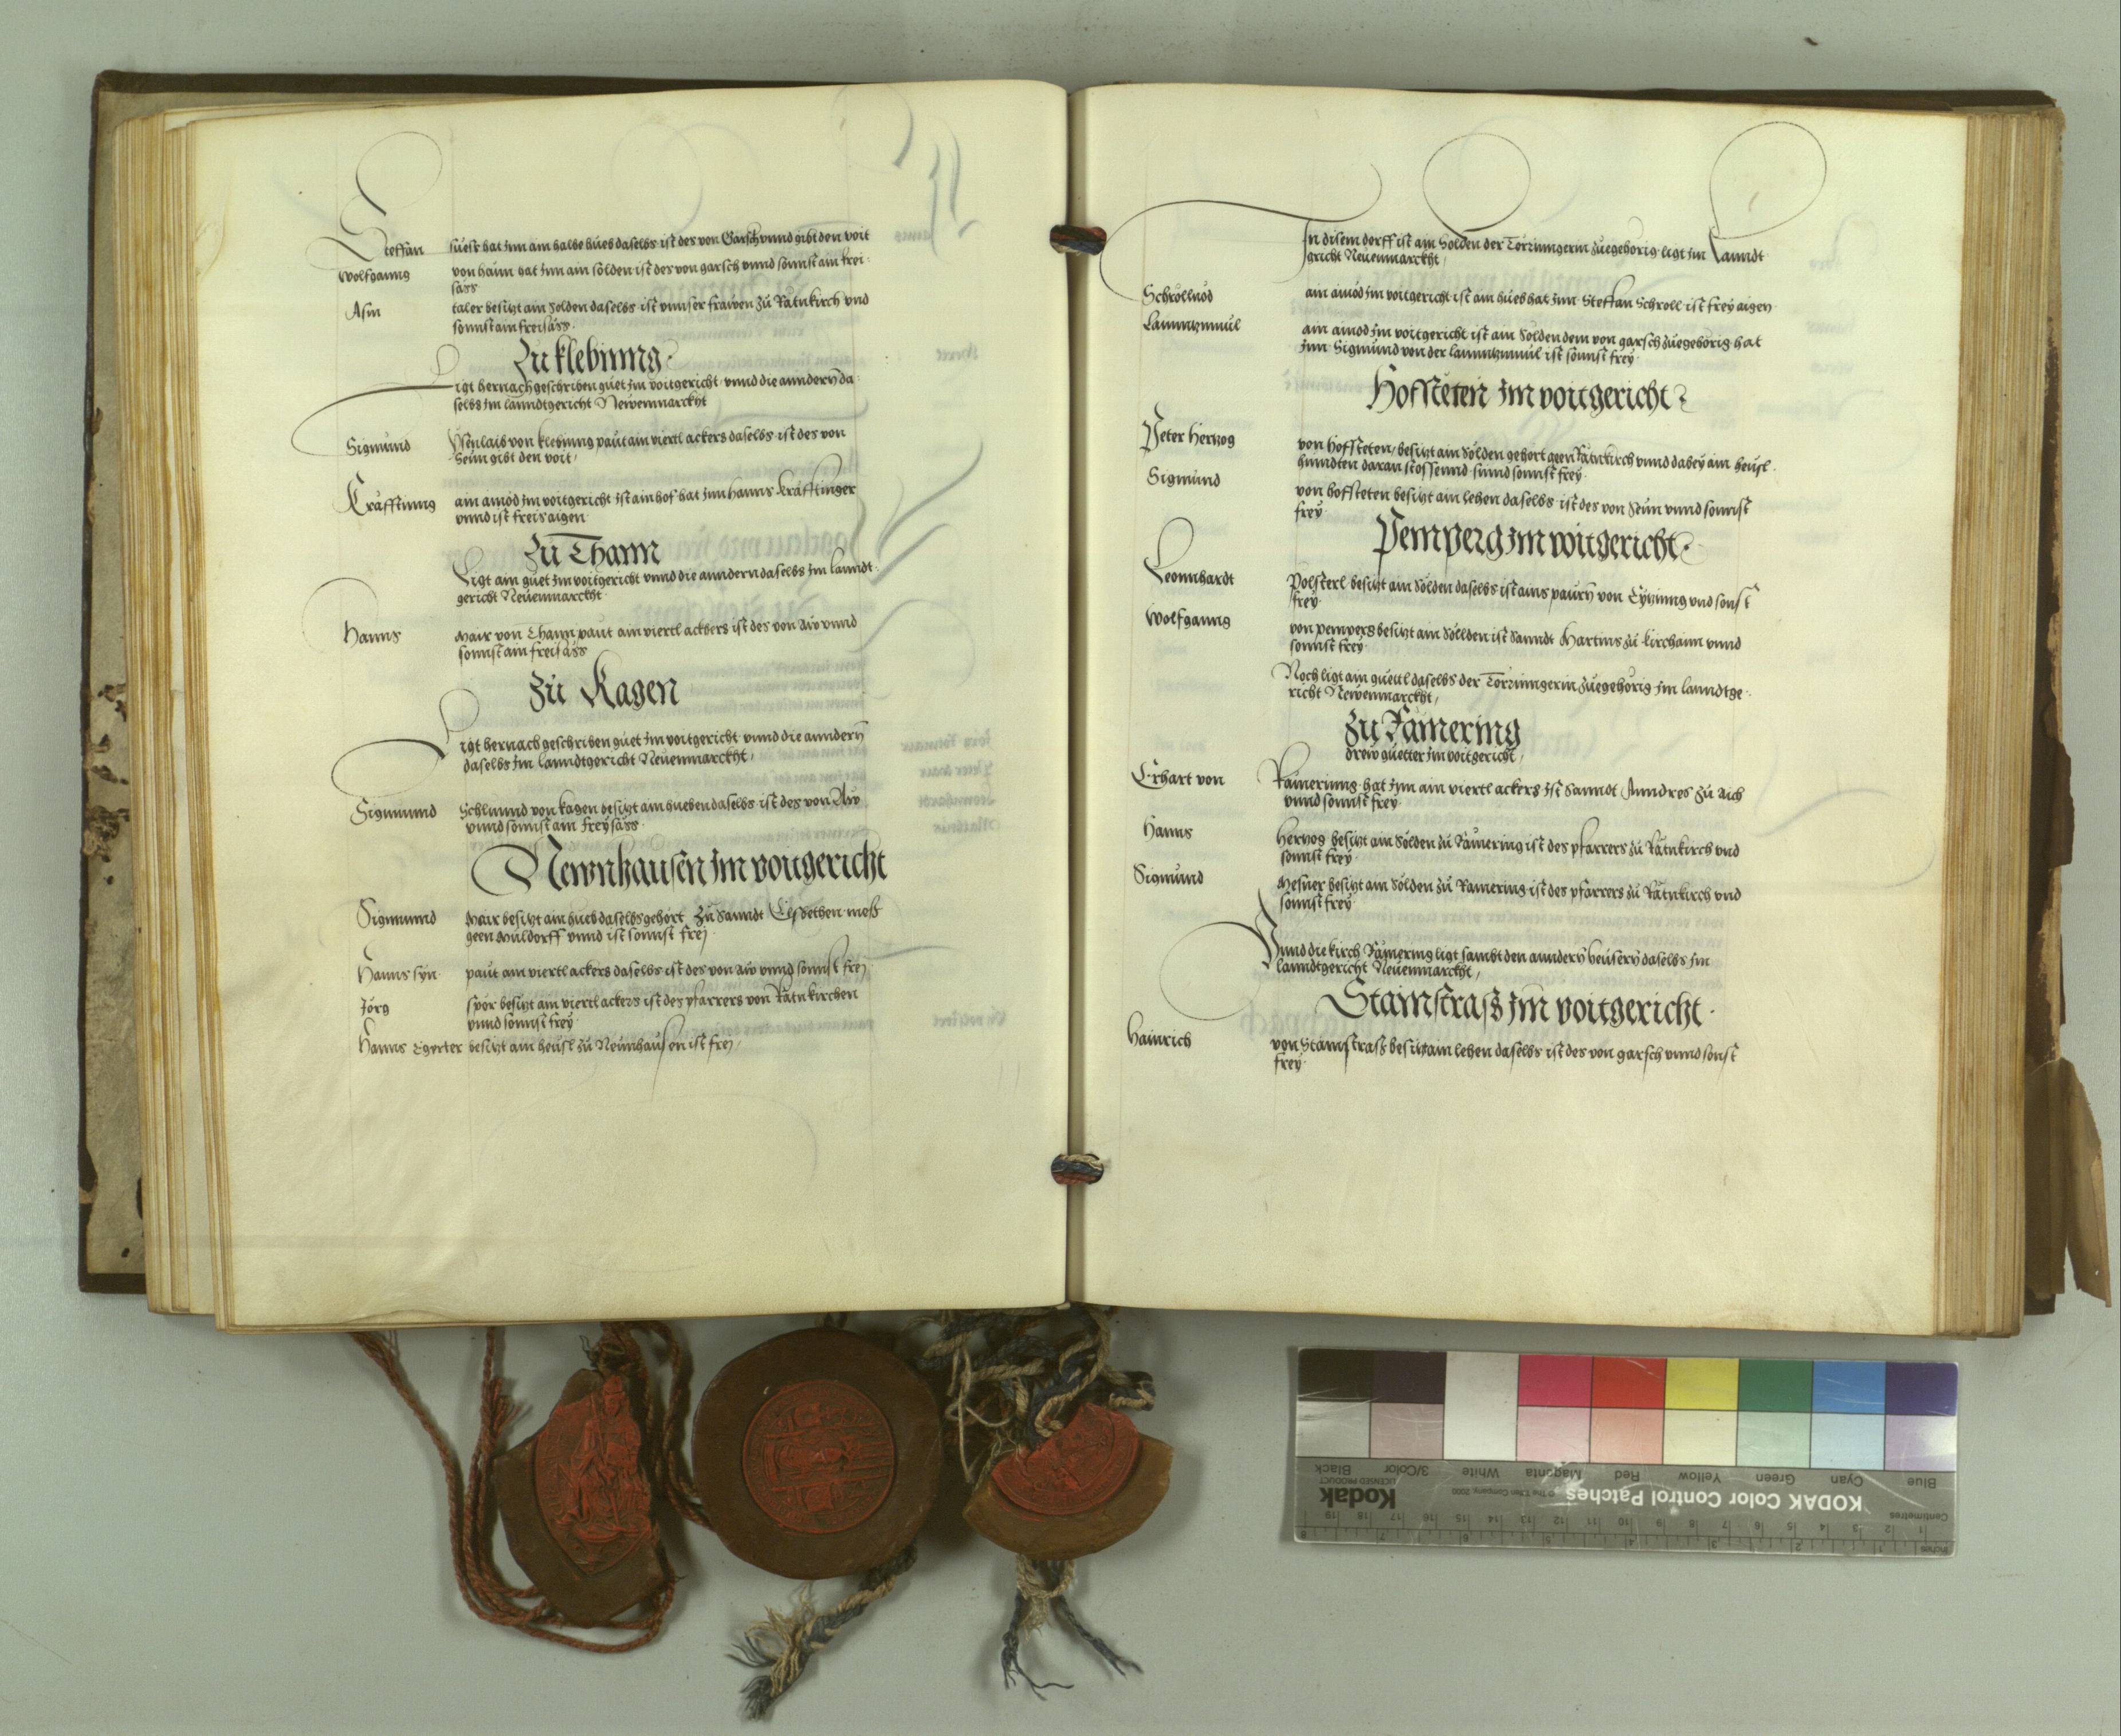 Steffan sue hat Inn ain halbe hueb daselbs ist des von Garsch vnnd gibt den voit
Wolfganng von haun hat Inn ain sölden ist des von garsch vnnd sonnst ain frei:
säss
Asm taler besitzt ain Sölden daselbs ist vnnser frawen zu Rätnkirch vnd
sonnst ain freisäss
Zu klebinng
Ligt hernachgeschriben guet Im voitgericht vnnd die anndern da
selbs Im lanndtgericht Newenmarckht
Sigmund von klebinng paut ain viertl ackers daselbs ist des von
Seun gibt den voit
Cräfftinng ain ainöd Im voitgericht Ist ain hof hat Inn hanns kräfftinger
vnnd ist freis aigen
Zu Thann
Ligt ain guet Im voitgericht vnnd die anndern daselbs Im lanndt
gericht Neuenmarckht
Hanns mair von Thann paut ain viertl ackhers ist des von aw vnnd
sonnst ain freisäss
Zu Kagen
Ligt hernach geschriben guet Im voitgericht vnnd die anndern
daselbs Im lanndtgericht Neuenmarckht
Sigmund Schlunnd von kagen besitzt ain hueben daselbs ist des von Aw
vnnd sonnst ain freysäss
Newnhausen Im voitgericht
Sigmund mair besitzt ain hueb daselbs gehört zu Sanndt Elspethen meß
geen Müldorff vnnd ist sonnst frej
Hanns syn paut ain viertl ackers daselbs ist des von aw vnnd sonnst frej
Jörg spör besitzt ain viertl ackers ist des pfarrers von Rätnkirchen
vnnd sonnst frey
Hanns Egerter besitzt ain heusl zu Neunhausen ist frej
In disem dorff ist ain Sölden der Törrinngerin zuegehörig ligt Im Lanndt
gericht Neuenmarckht
Schrollnöd ain ainöd Im voitgericht ist ain hueb hat Inn Steffan Schroll ist frey aigen
Launtzmül ain ainöd Im voitgericht ist ain Sölden dem von garsch zuegehörig hat
Inn Sigmund von der launtzmül ist sonnst frey
Hofsteten Im voitgericht
Peter hertzog von hofsteten besitzt ain Sölden gehort geen Rätnkirch vnnd dabey ain heusl
hinndten daran stossennd sinnd sonnst frey
Sigmund von hofsteten besitzt ain lehen daselbs ist des von Seun vnnd sonnst
frey
Pemperg Im voitgericht
Leonnhardt Polsterl besitzt ain Sölden daselbs ist ains paurn von Eytzinng vnd sonst
frey
Wolfganng von pemperg besitzt ain Söllden ist Sanndt Martins zu kirchaim vnnd
sonnst frey
Noch ligt ain guettl daselbs der Törrinngerin zuegehörig Im lanndtge
richt Newenmarckht
Zu Rämering
drew guetter Im voitgericht
Erhart von Rämerinng hat Inn ain viertl ackers Ist Sanndt Anndres zu Aich
vnnd sonnst frey
Hanns hertzog besitzt ain Sölden zu Rämering ist des pfarrers zu Rätnkirch vnd
sonnst frey
Sigmund Mesner besitzt ain Sölden zu Ramering ist des pfarrers zu Rätnkirch vnd
sonnst frey
Vnnd die kirch Rämering ligt sambt den anndern heusern daselbs Im
lanndtgericht Neuenmarckht
Stainstrass Im voitgericht
Hainrich von Stainstrass besitzt ain lehen daselbs ist des von garsch vnnd sonst
frey
Blue Cyan Green Yellow Red Magenta White 3/Color Black
KODAK Color Control Patches Kodak
LICENSED PRODUCT
Centimetres
Inches